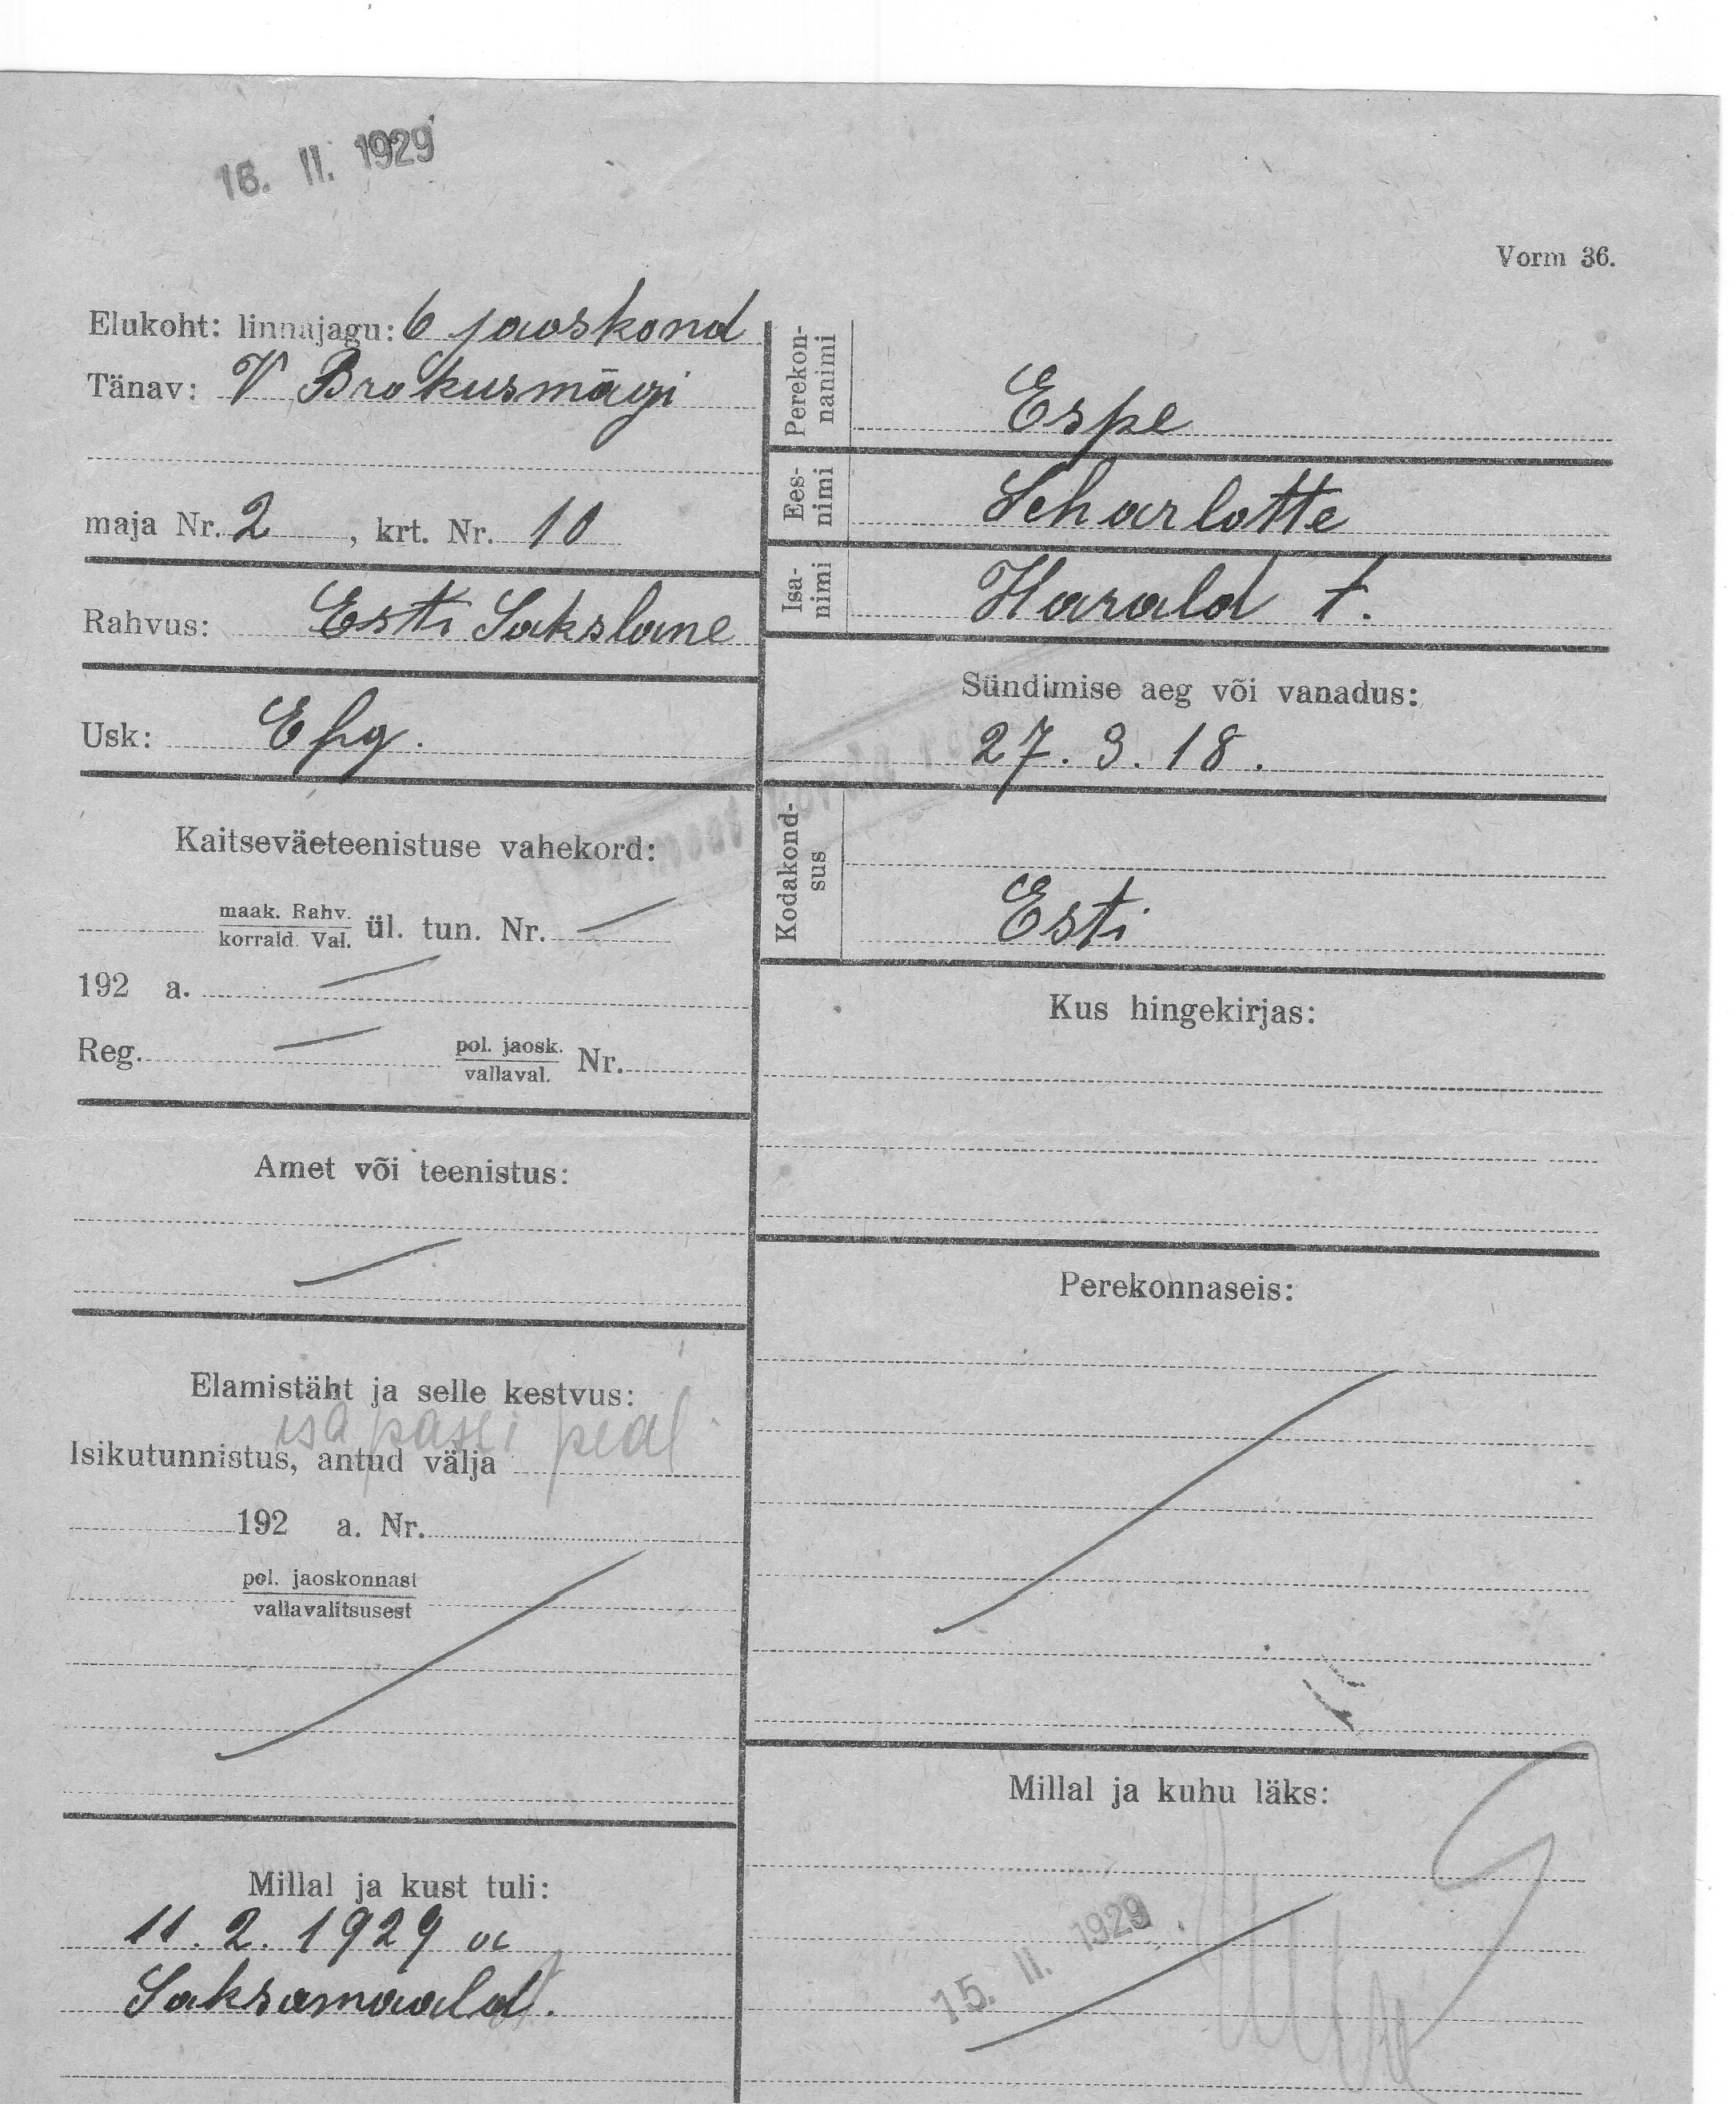 16. II. 1929
Vorm 36.
Elukoht: linnajagu: 6 jaoskond
Tänav: V Brokusmägi
maja Nr. 2 , krt. Nr. 10
Rahvus: Esti Sakslane
Usk: Ehg.
Kaitseväeteenistuse vahekord:
maak. Rahv.
korrald. Val. ül. tun. Nr.
192 a.
Reg. pol. jaosk.
vallaval. Nr.
Amet või teenistus:
Elamistäht ja selle kestvus:
isa passi peal
Isikutunnistus, antud välja
192 a. Nr.
pol. jaoskonnast
vallavalitsusest
Millal ja kust tuli:
11. 2. 1929 a
Saksamaald.
Perekon-
nanimi
Espe
Ees-
nimi
Scharlotte
Isa-
nimi
Harald t.
Sündimise aeg või vanadus:
27. 3. 18.
Kodakond-
sus
Esti
Kus hingekirjas:
Perekonnaseis:
Millal ja kuhu läks:
15. II. 1929